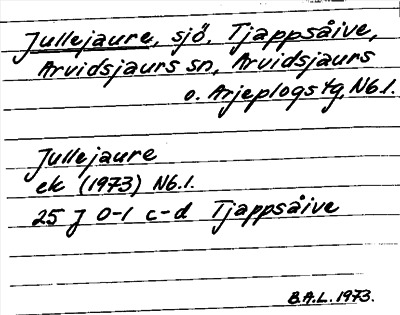 Jullejaure, sjö, Tjappsåive,
Arvidsjaurs sn, Arvidsjaurs
o. Arjeplogs tg, Nb.l.
Jullejaure
ek (1973) Nb.l.
25 J 0-1 c-d Tjappsåive
B.A.L. 1973.